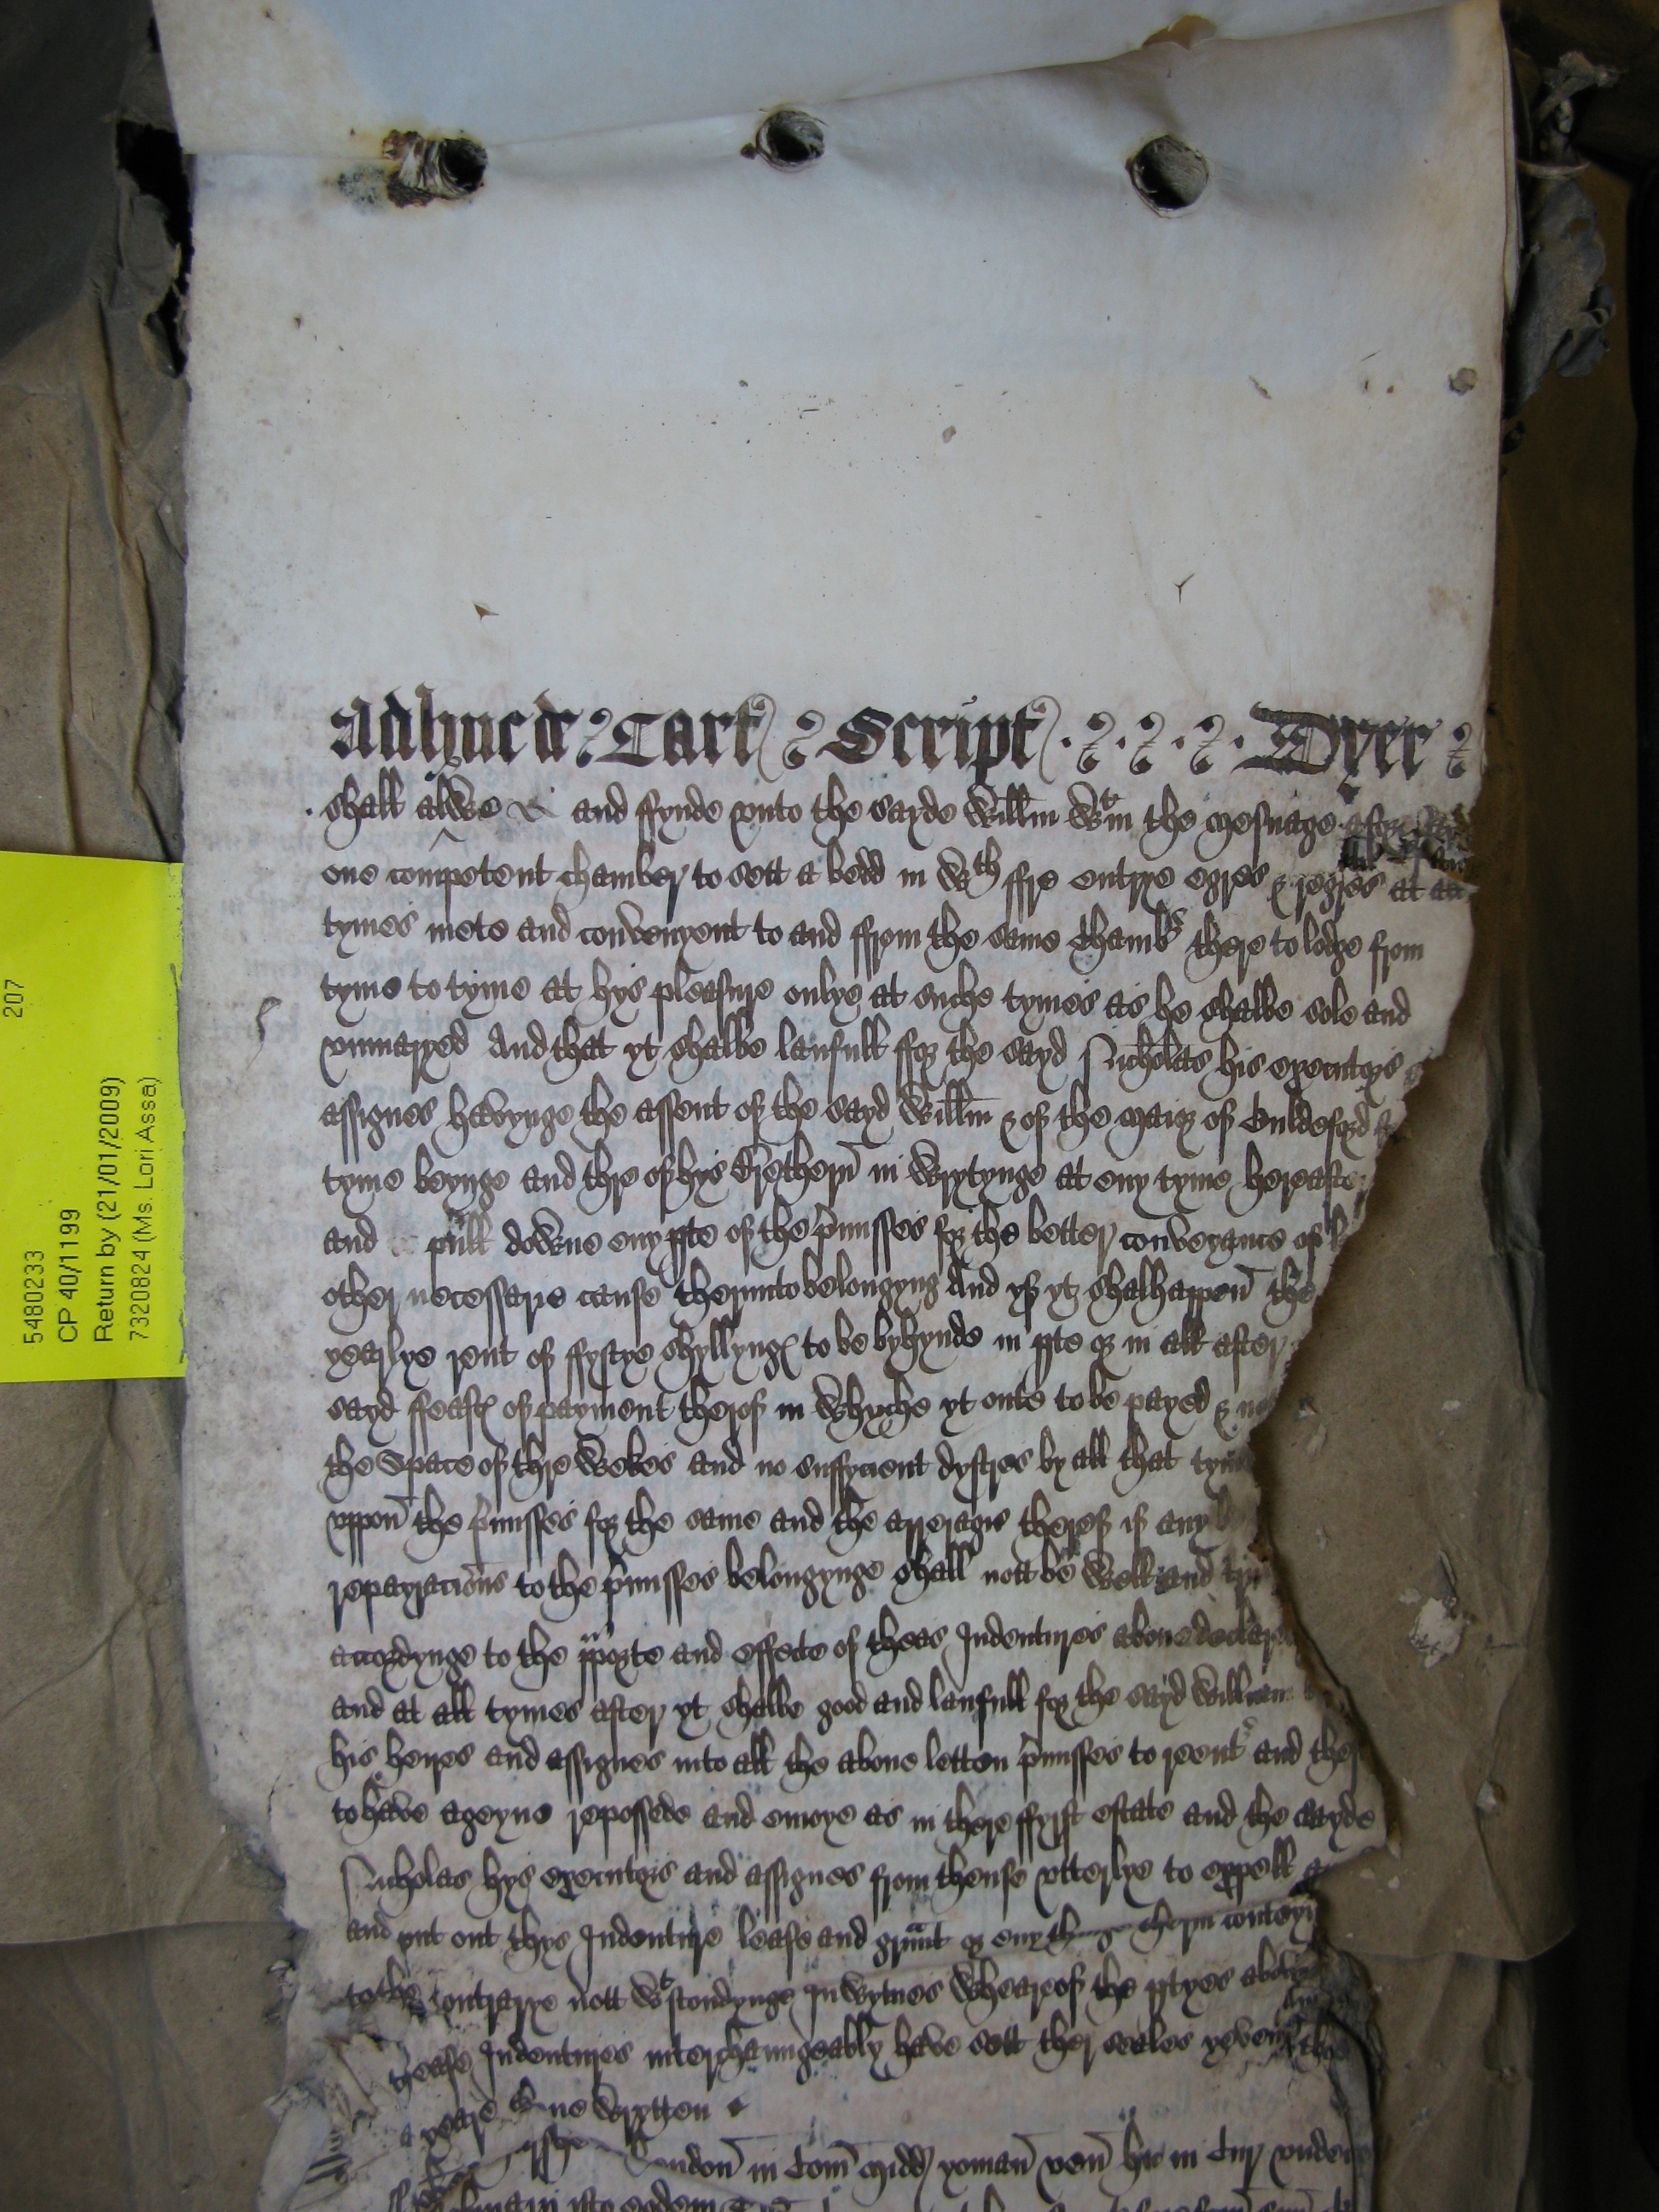 5480233 207
CP 40/1199
Return by (21/01/2009)
7320824 (Ms. Lori Assa)
Adhuc de Cart Script Dyer
shall alwe and ffynde vnto the sayde Willm wtin the mesuage
one competent chamber to sett a bedd in wth ffre entrye egres & regres at
tymes mete and convenyent to and ffrom the same chamb there to lodge from
tyme to tyme at hys pleasure onlye at suche tymes as he shalbe sole and
vnmaryed And that yt shalbe laufull ffor the sayd Nicholas his executors
assignes havynge the assent of the sayd Willm & of the maior of Guldeford
tyme beynge and thre of hys Brethern in wrytynge at eny tyme hereafte
and pull downe eny pte of the pmisses for the better conveyance of
other necessarie cause therunto belongyng And yf yt shalhappen the
yearlye rent of ffyftye shyllyng to be byhynde in pte or in all after
sayd ffeast of payment therof in whyche yt oute to be payed &
the space of thre wekes and no suffycient dystres by all that tym
vppon the pmisses for the same and the arreragis therof if any
reparacions to the pmisses belongynge shall nott be well and
accordynge to the pporte and effecte of theas Indentures above declar
and at all tymes after yt shalbe good and laufull for the sayd William
his heyres and assignes into all the above letton pmisses to reent and
to have ageyne repossede and enioye as in there ffyrst estate and the sayde
Nicholas hys executors and assignes from thense vtterlye to expell
and put out thys Indenture lease and graunt or eny thing therin conteyn
to the contrarye nott wtstondynge In wytnes wheareof the ptyes above
these Indentures interchaungeably have sett ther seales yeven the
yeare wrytten
London in Com Midd yoman ven hic in Cur